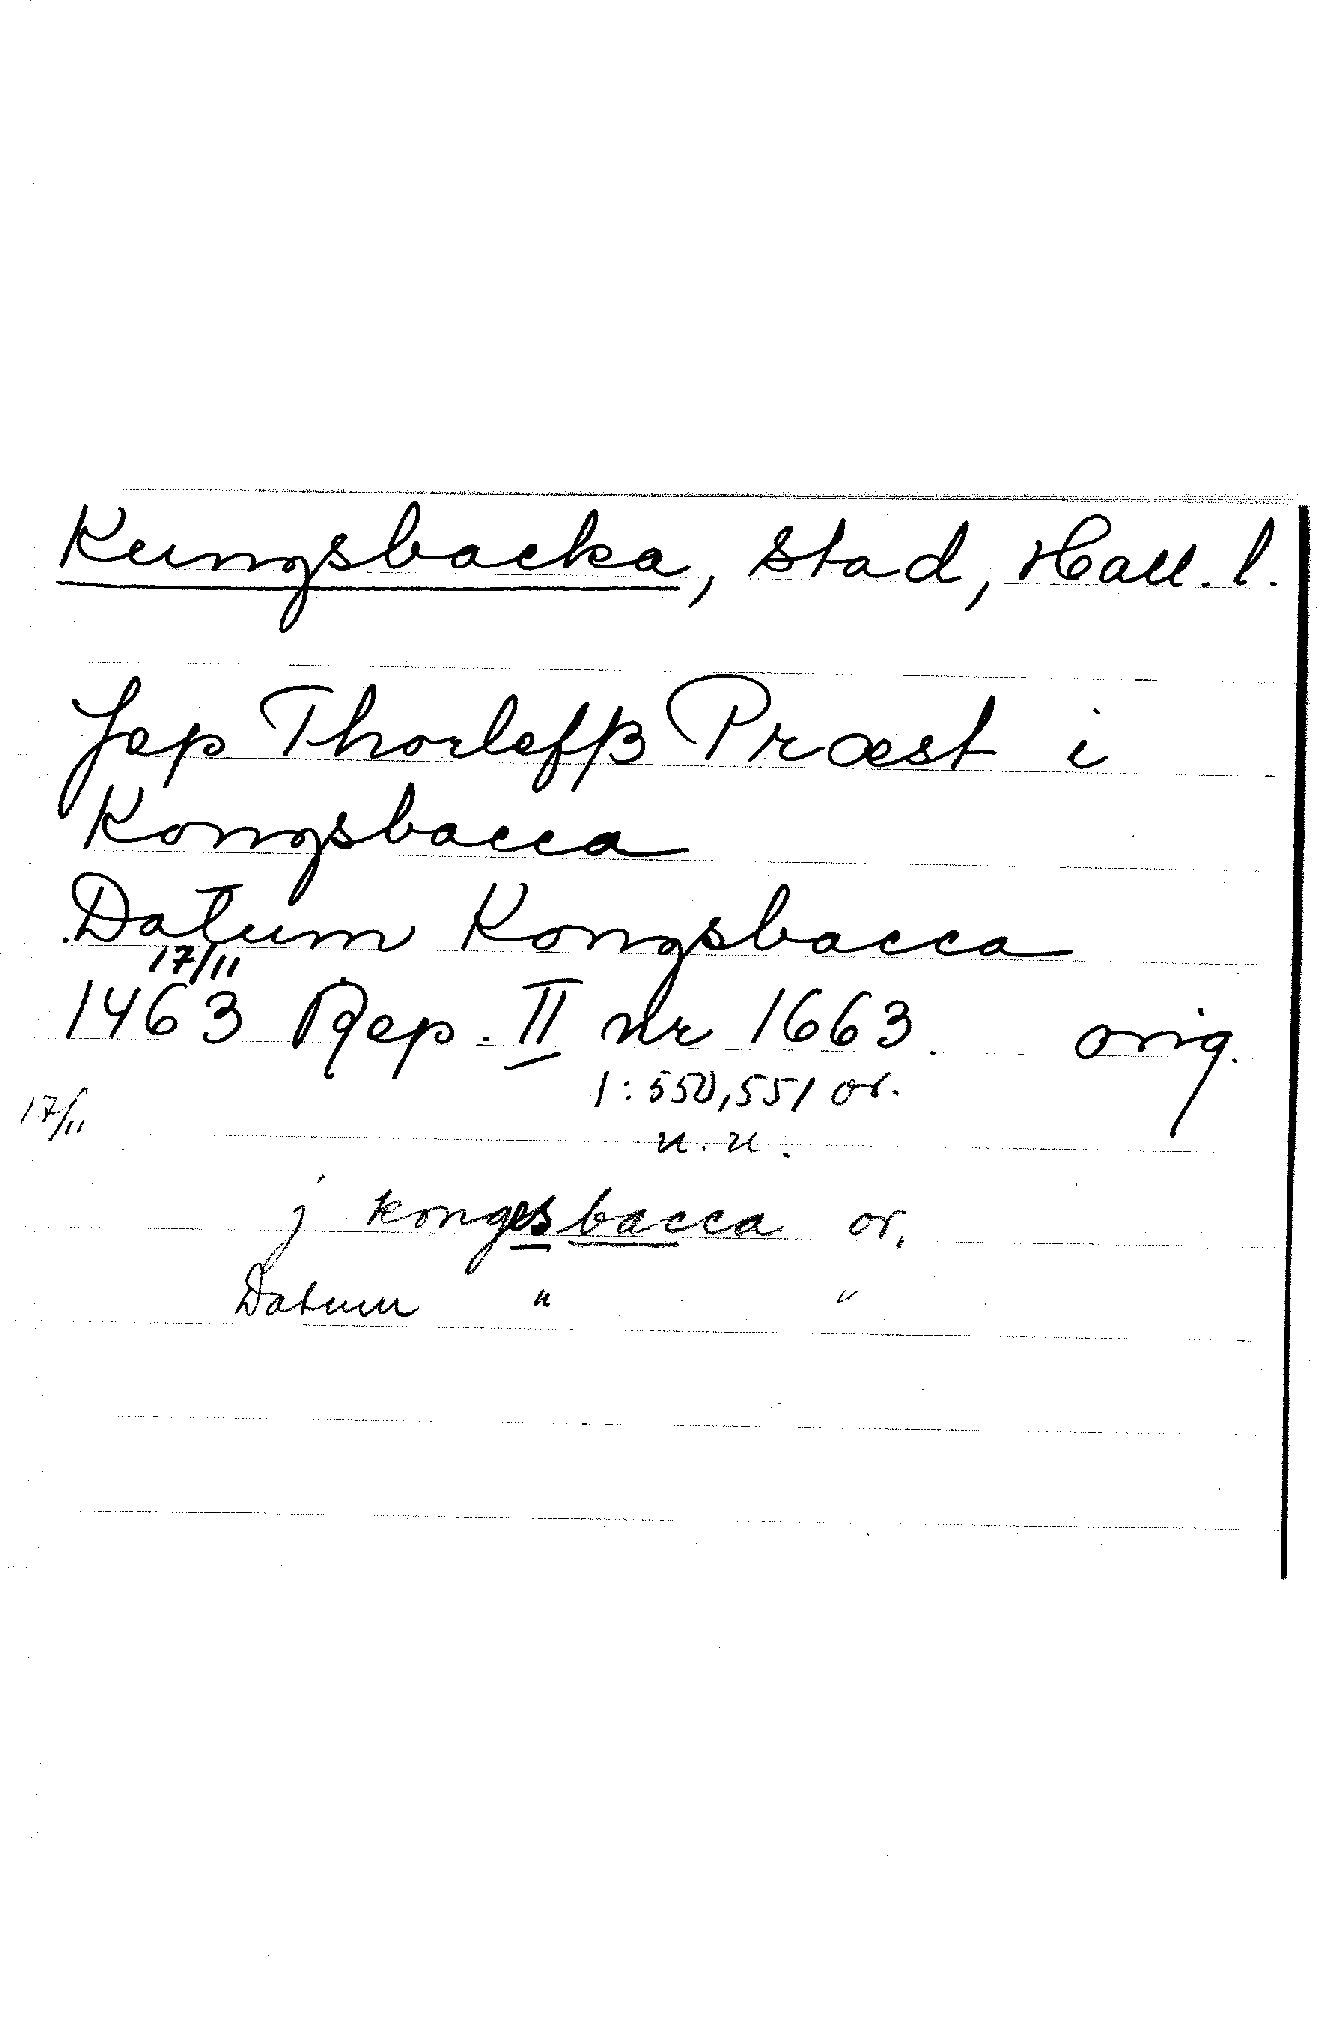 Kungsbacka, stad, Hall. l.
Jep Thorlefß Præst i
Kongsbacca
Datum Kongsbacca
17/11
1463 Rep. II nr 1663. orig.
1:550,551 or.
17/11
u. u.
j kongesbacca or.
Datum " "